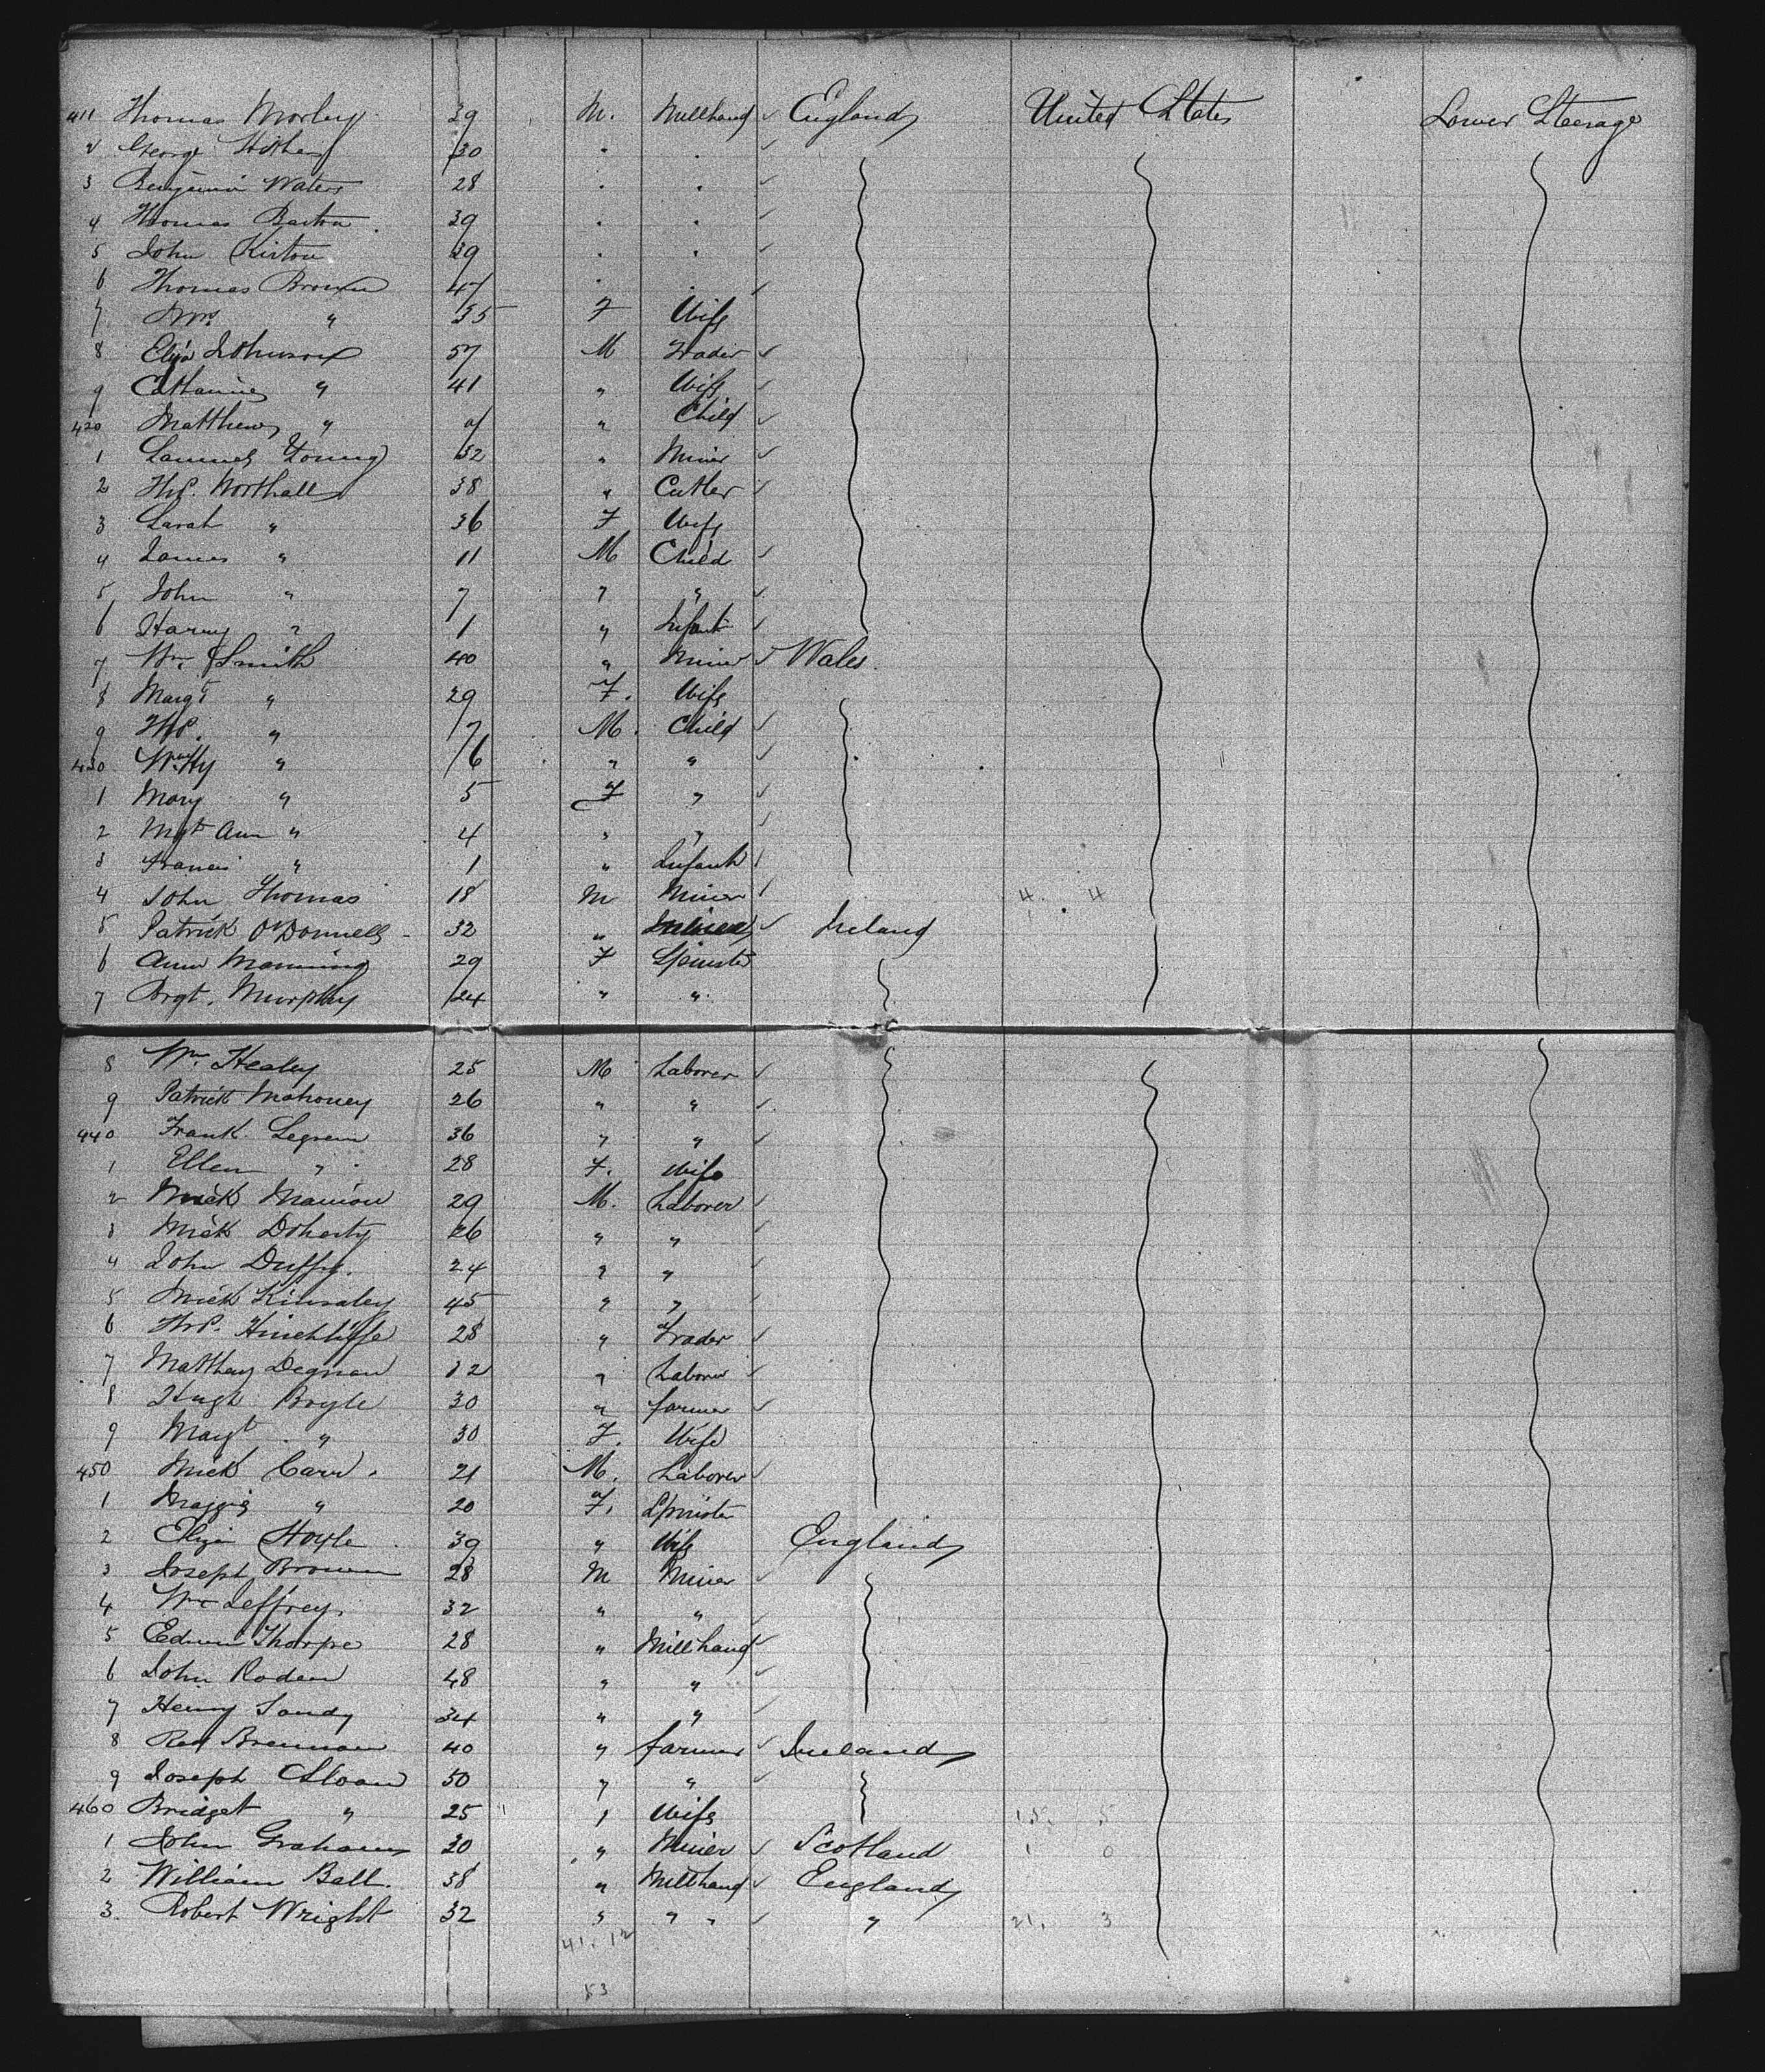 411 Thomas Morley 39 M. Millhand ✓ England United States Lower Steerage
2 George 30 " " ✓
3 Benjamin Waters 28 " " ✓
4 Thomas Barton 39 " " ✓
5 John Kirton 39 " " ✓
6 Thomas Brown 47 " " ✓
7 Mrs " 35 F Wife
8 Johnson 57 M Trader ✓
9 Catharine " 41 " Wife ✓
420 Matthew " " Child ✓
1 Samuel Young 32 " Miner ✓
2 Thos. Worthall 38 " Cutler ✓
3 Sarah " 36 F Wife
4 James " 11 M Child ✓
5 John " 7 " " ✓
6 Harry " 1 " Infant ✓
7 Wm Smith 40 " Miner ✓ Wales
8 Margt " 29 F. Wife
9 Thos. " 7 M. Child ✓
430 Wm Hy " 6 " " ✓
1 Mary " 5 F " ✓
2 Mgt Ann " 4 " " ✓
3 Francis " 1 " Infant ✓
4 John Thomas 18 M Miner ✓ 4. 4
5 Patrick O'Donnell 32 " ✓ Ireland
6 Ann Manning 29 F Spinster
7 Brgt. Murphy 24 " "
8 Wm Healey 25 M Laborer ✓
9 Patrick Mahoney 26 " " ✓
440 Frank 36 " " ✓
1 Ellen " 28 F. Wife
2 Mick Manion 29 M. Laborer ✓
3 Mick Doherty 26 " " ✓
4 John Duffy. 24 " " ✓
5 Mick Kinsaley 45 " " ✓
6 Thos. Hinchliffe 28 " Trader ✓
7 Matthew Degnan 32 " Laborer ✓
8 Hugh Boyle 30 " farmer ✓
9 Margt " 30 F. Wife
450 Mick Carr 21 M. Laborer ✓
1 Maggie " 20 F. Spinster
2 Eliza Hoyle 39 " Wife England
3 Joseph Brown 28 M Miner ✓
4 Wm Jeffrey 32 " " ✓
5 Edwin Thorpe 28 " Millhand ✓
6 John Roden 48 " " ✓
7 Henry Sandy 34 " " ✓
8 Brennan 40 " farmer ✓ Ireland
9 Joseph Sloan 50 " " ✓
460 Bridget " 25 " Wife 15. 5
1 John Graham 30 " Miner ✓ Scotland 1 0
2 William Ball. 38 " Millhand ✓ England
3. Robert Wright 32 " " " ✓ " 21. 3
41. 12
53